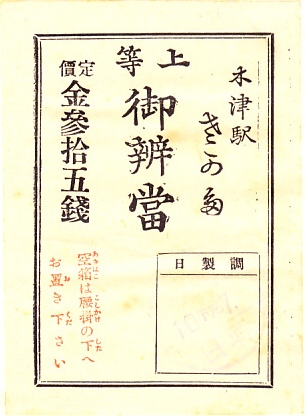 木津駅
上等
御辨當
定價
金參拾五錢
調製日
空箱は腰掛の下へ
お置き下さい